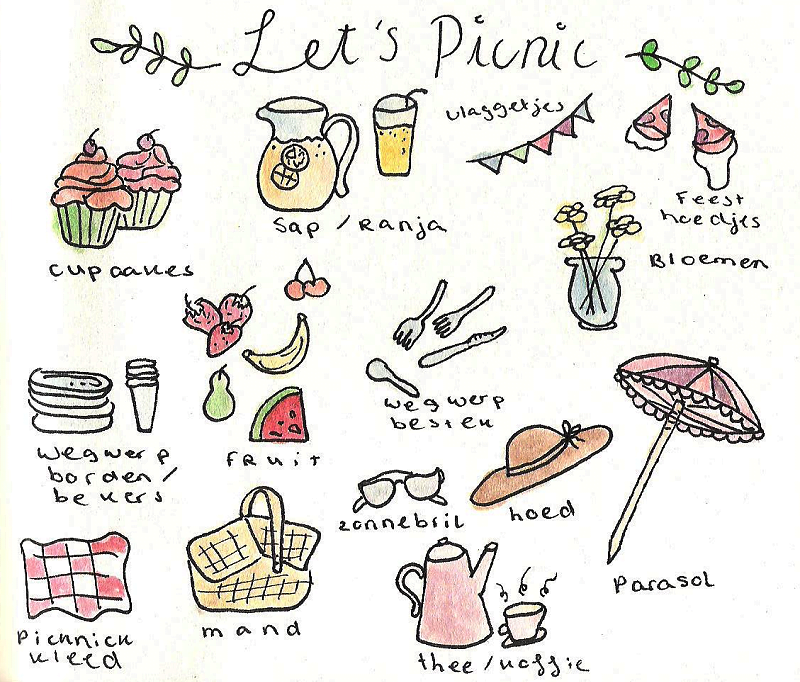 Let's Picnic
vlaggetjes
Feest
hoedjes
Sap / Ranja
Bloemen
cupcakes
wegwerp
bestek
wegwerp
borden /
bekers
fruit
zonnebril
hoed
parasol
mand
picknick
kleed
thee / koffie